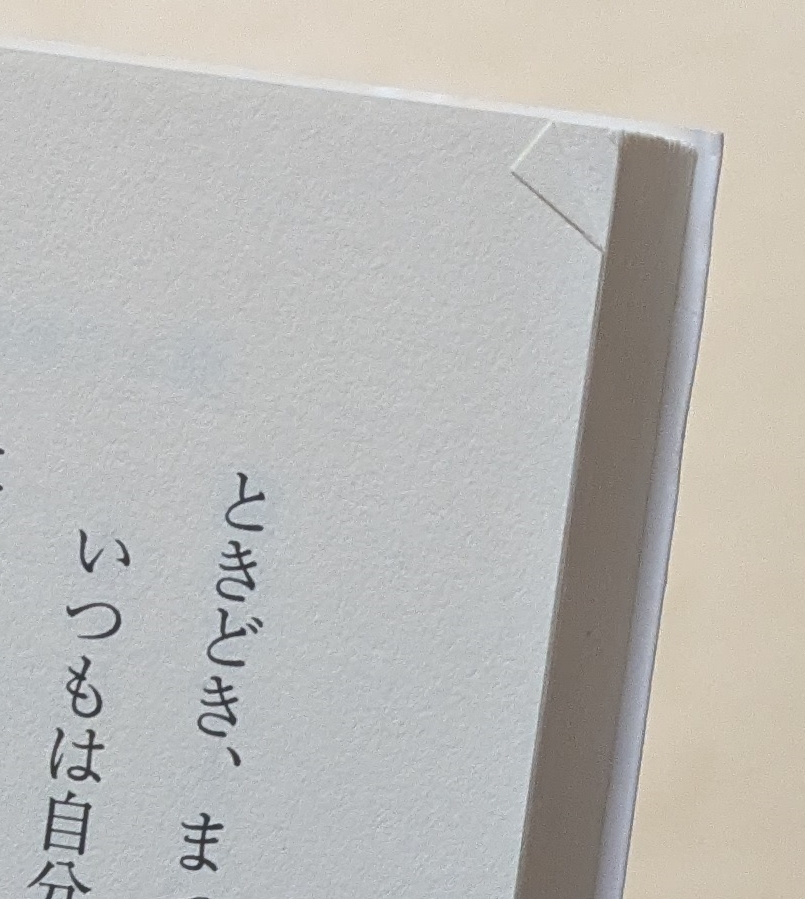 ときどき、ま
いつもは自分